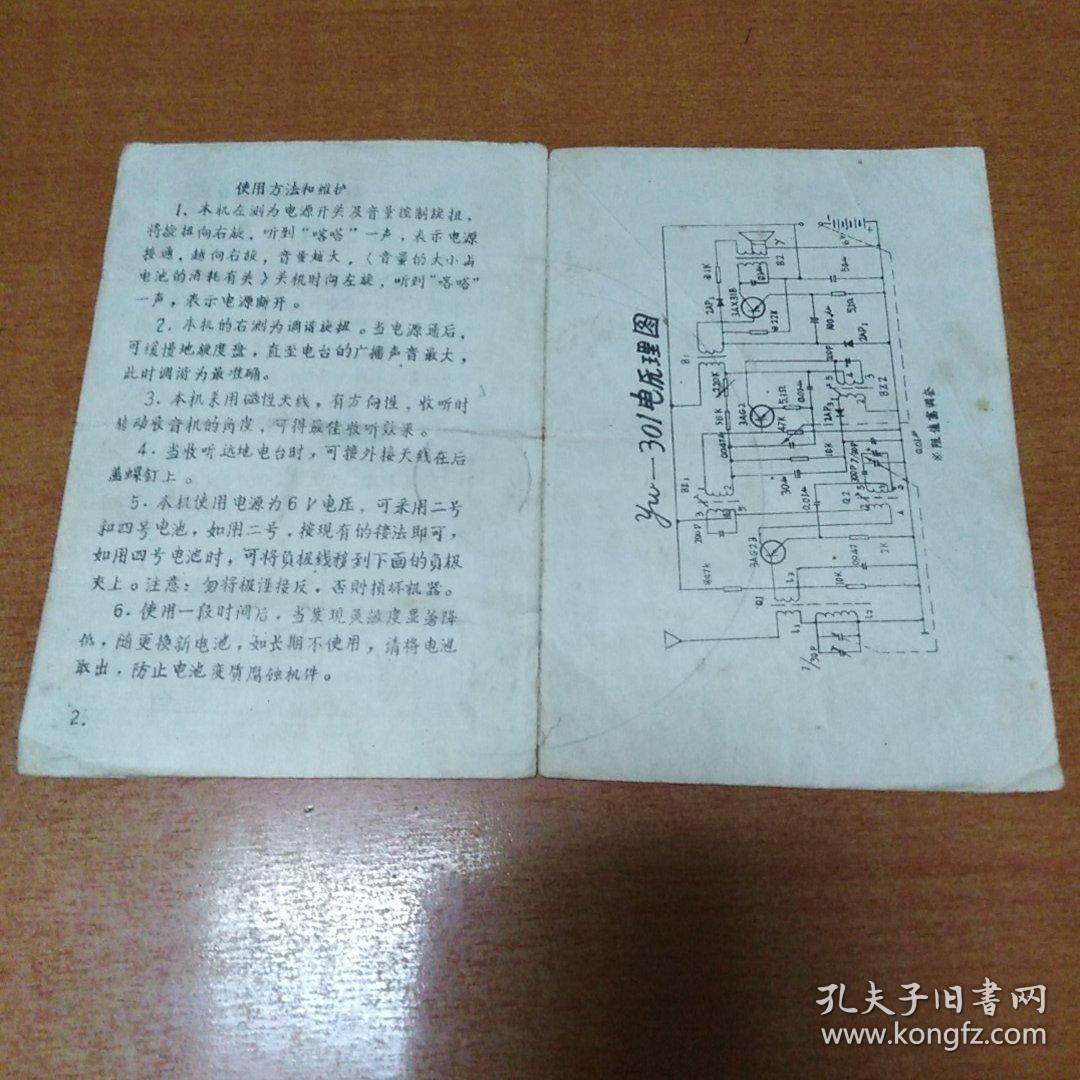 使用方法和维护
1、本机左测为电源开关及音量控制旋扭，
将旋扭向右旋，听到“嗒嗒”一声，表示电源
接通，越向右旋，音量越大，（音量的大小与
电池的消耗有关）关机时向左旋，听到“嗒嗒”
一声，表示电源断开。
2．本机的右测为调谐旋扭。当电源通后，
可缓慢地 度盘，直至电台的广播声音最大，
此时调谐为最准确。
3．本机采用磁性天线，有方向性，收听时
转动收音机的角度，可得最佳收听效果。
4．当收听远地电台时，可接外接天线在后
盖螺钉上。
5．本机使用电源为6V电压，可采用二号
和四号电池，如用二号，按现有的接法即可，
如用四号电池时，可将负极线移到下面的负极
夹上。注意：勿将极性接反，否则损坏机器。
6．使用一段时间后，当发现灵敏度显著降
低，随更换新电池，如长期不使用，请将电池
取出，防止电池变质腐蚀机件。
2．
YW—301电原理图
3AG23
3AG2
3AX31B
2AP1
2AP1
BZ1
BZ2
B1
B2
Q1
Q2
847K
200P
0.047μ
56K
220K
47K
51Ω
30μ
0.01μ
10K
10K
2K
0.047
200P
100μ
51Ω
50μ
81K
6V
7/30P
L1
L2
L3
0.01μ
※阻值需调整
孔夫子旧書网
www.kongfz.com